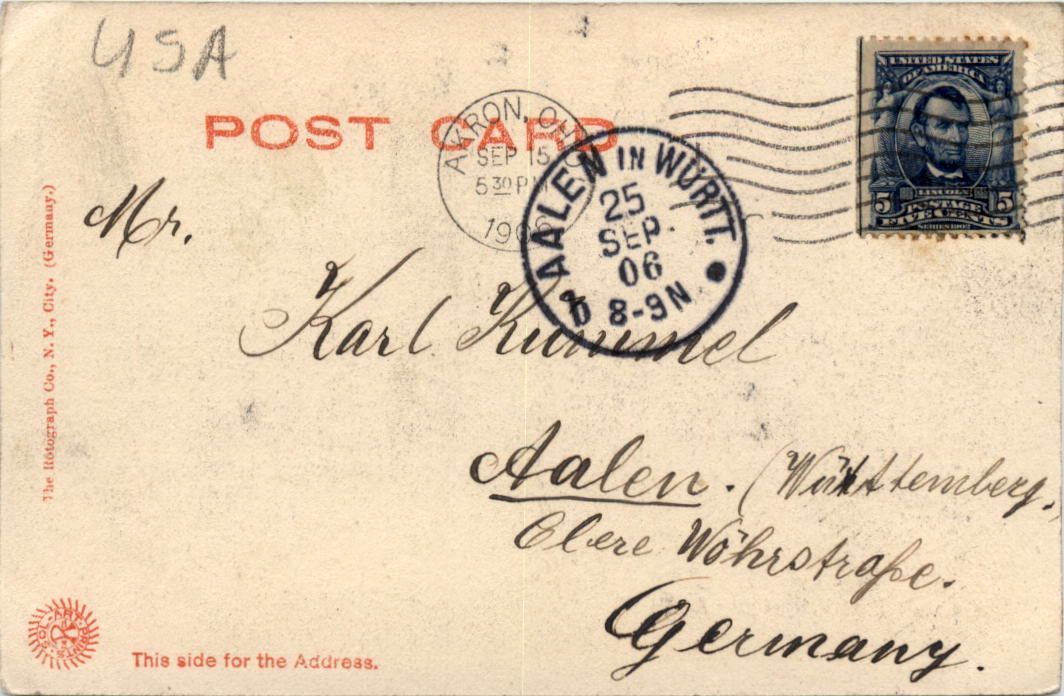 USA
POST CARD
AKRON, OHIO
SEP 15
5 30 P
1906
AALEN IN WÜRTT.
25
SEP.
06
8-9N
UNITED STATES
OF AMERICA
LINCOLN
5 POSTAGE 5
FIVE CENTS
SERIES 1902
Mr.
Karl Kummel
Aalen. (Württemberg.
Obere Wöhrstraße.
Germany.
The Rotograph Co., N. Y., City. (Germany.)
SOL-ART PRINTS
This side for the Address.